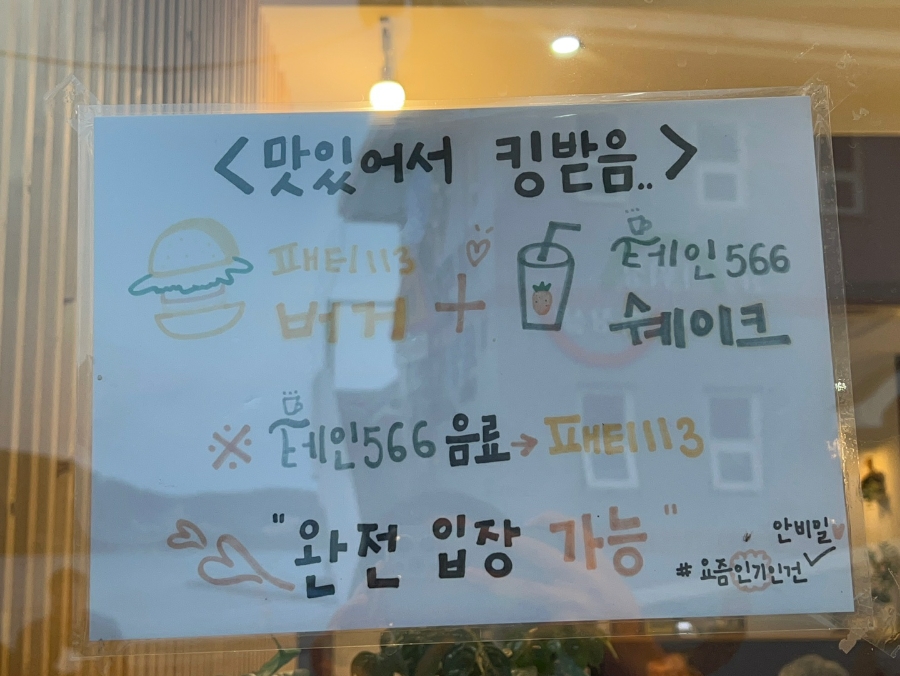 <맛있어서 킹받음..>
패티113
버거
+
테인566
쉐이크
※ 테인566 음료→패티113
"완전 입장 가능"
안비밀
#요즘인기인건